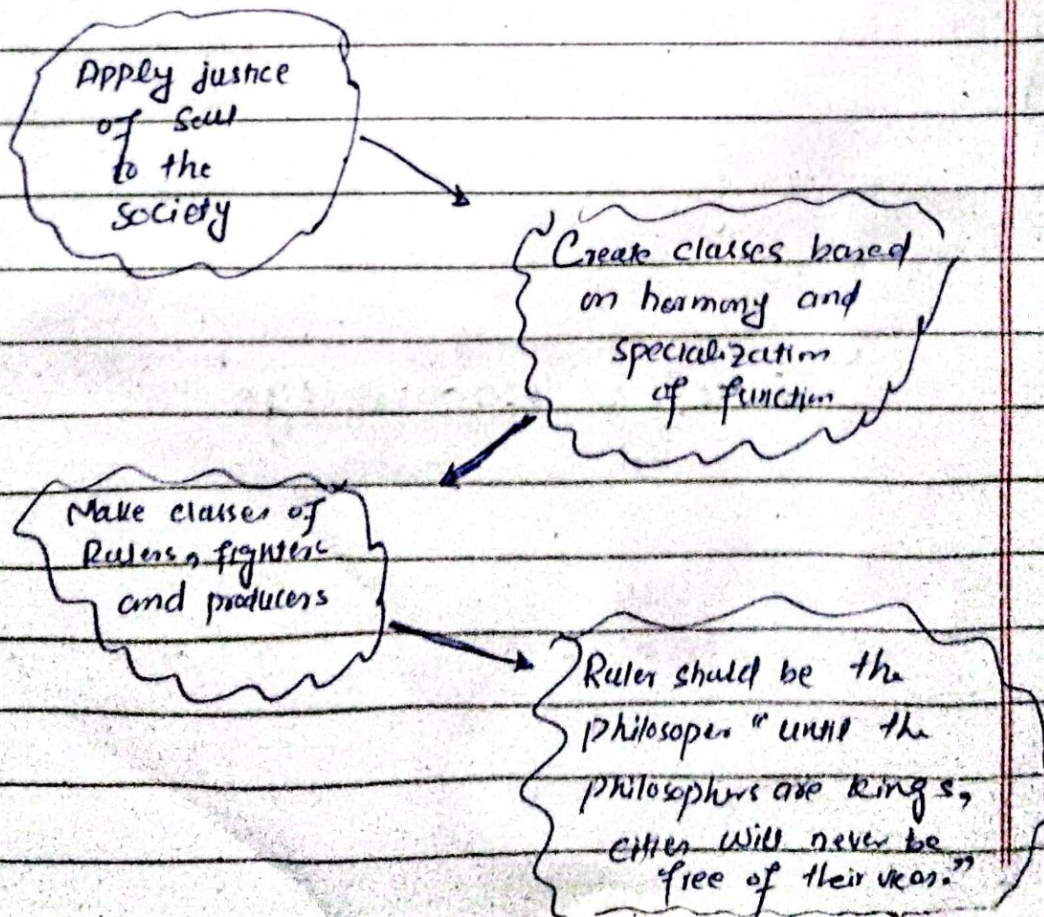 Apply justice
of soul
to the
society
Create classes based
on harmony and
specialization
of function
Make classes of
Rulers, fighters
and producers
Ruler should be the
philosoper " until the
philosophers are kings,
cities will never be
free of their vices."